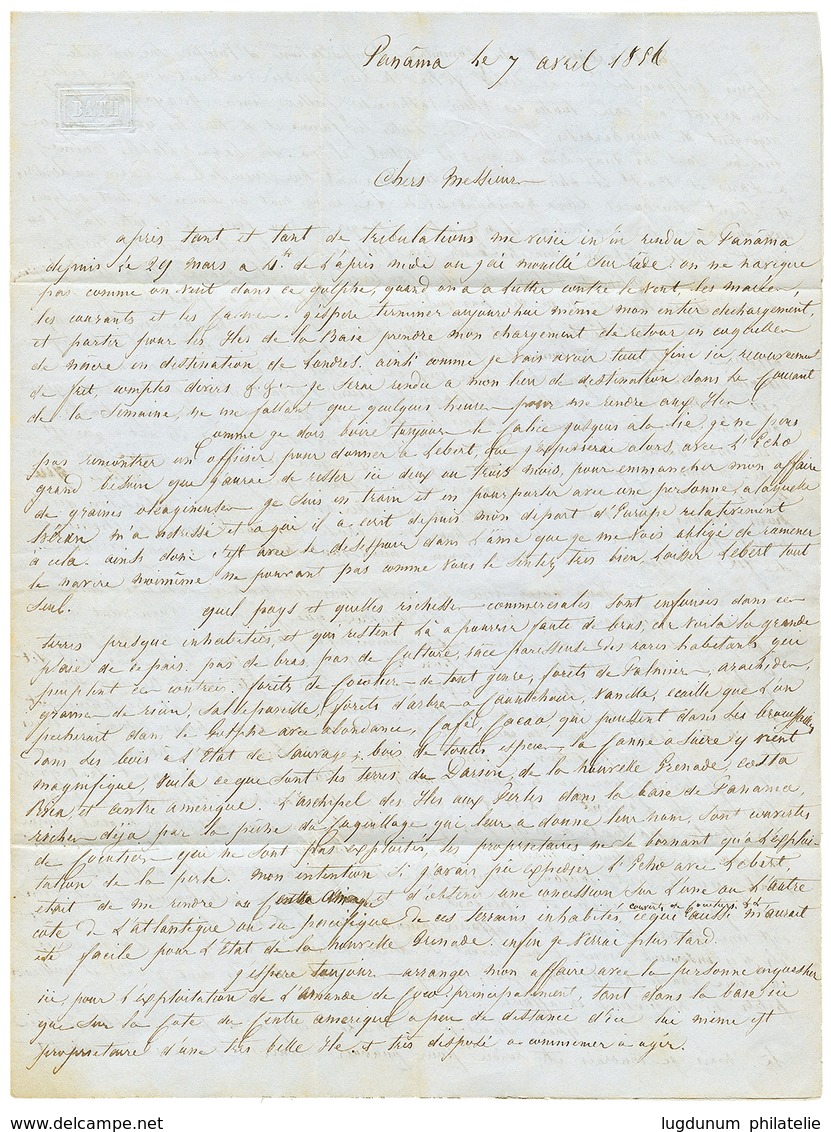 Panáma le 7 avril 1856
BATH
Chers Messieurs
après tant et tant de tribulations me voici enfin rendu à Panáma
depuis le 29 mars a 4hr de l'après midi ou j'ai mouillé sur rade. on ne navigue
pas comme on veut dans ce golphe, quand on a a lutter contre le vent, les marées,
les courants et les . j'espère terminer aujourd'hui même mon entier dechargement,
et partir pour les Iles de la Baie prendre mon chargement de retour en coquilles
de nâcre en destination de Londres. ainsi comme je vais avoir tout fini ici, recouvrement
de fret, comptes divers &. &a je serai rendu a mon lieu de destination dans le Courant
de la Semaine, ne me fallant que quelques heures pour me rendre aux Iles.
Comme je dois boire toujours le Calice jusques a la lie, je ne peus
pas rencontrer un officier pour donner a Lebert, que j'expedierai alors, avec l'Echo
grand besoin que j'aurai de rester ici deux ou trois mois, pour emmancher mon affaire
de graines oléagineuses je suis en train et en pourparler avec une personne, a laquelle
m'a adressé et a qui il a ecrit depuis mon depart d'Europe relativement
à cela. ainsi donc c'est avec le desespoir dans l'ame que je me vois obligé de ramener
le navire moimême ne pouvant pas comme vous le sentez très bien laisser Lebert tout
seul. quel pays et quelles richesses commerciales sont enfouies dans ces
terres presque inhabitées, et qui restent là a pourrir faute de bras, car voilà la grande
plaie de ce pais. pas de bras, pas de Culture, race paresseuse des rares habitants qui
peuplent ces contrées. forêts de Cocotiers de tout genre, forêts de Palmiers, arachides,
graines de ricin, Salsepareille, forêts d'arbres a Caoutchouc, Vanille, ecaille que l'on
pecherait dans le Golphe avec abondance, Café, Cacao, qui poussent dans les broussailles
dans les bois a l'Etat de Sauvage; bois de toutes especes. la Canne a Sucre y vient
magnifique, voila ce que sont les terres du Darien, de la nouvelle Grenade, Costa
Rica et centre amerique. L'archipel des Iles aux Perles dans la baie de Panáma,
riches deja par la pêche du Coquillage qui leur a donné leur nom, sont couvertes
de Cocotiers qui ne sont pas exploités, les proprietaires ne se bornant qu'à l'exploi-
tation de la perle. mon intention si j'avais pu expedier l'Echo avec Lebert
etait de me rendre au Centre Amerique et d'obtenir une concession sur l'une ou l'autre
couverts de Cocotiers &&
cote de l'atlantique ou du pacifique de ces terrains inhabités, ce qui aussi m'aurait
eté facile pour l'Etat de la nouvelle Grenade. enfin je verrai plus tard.
j'espere toujours arranger mon affaire avec la personne en question
ici, pour l'exploitation de l'amande de Coco principalement, tant dans la baie ici
que sur la Cote du Centre amerique a peu de distance d'ici lui même est
proprietaire d'une très belle Ile. et très disposé a commencer a agir.
lugdunum philatelie
delcampe.net